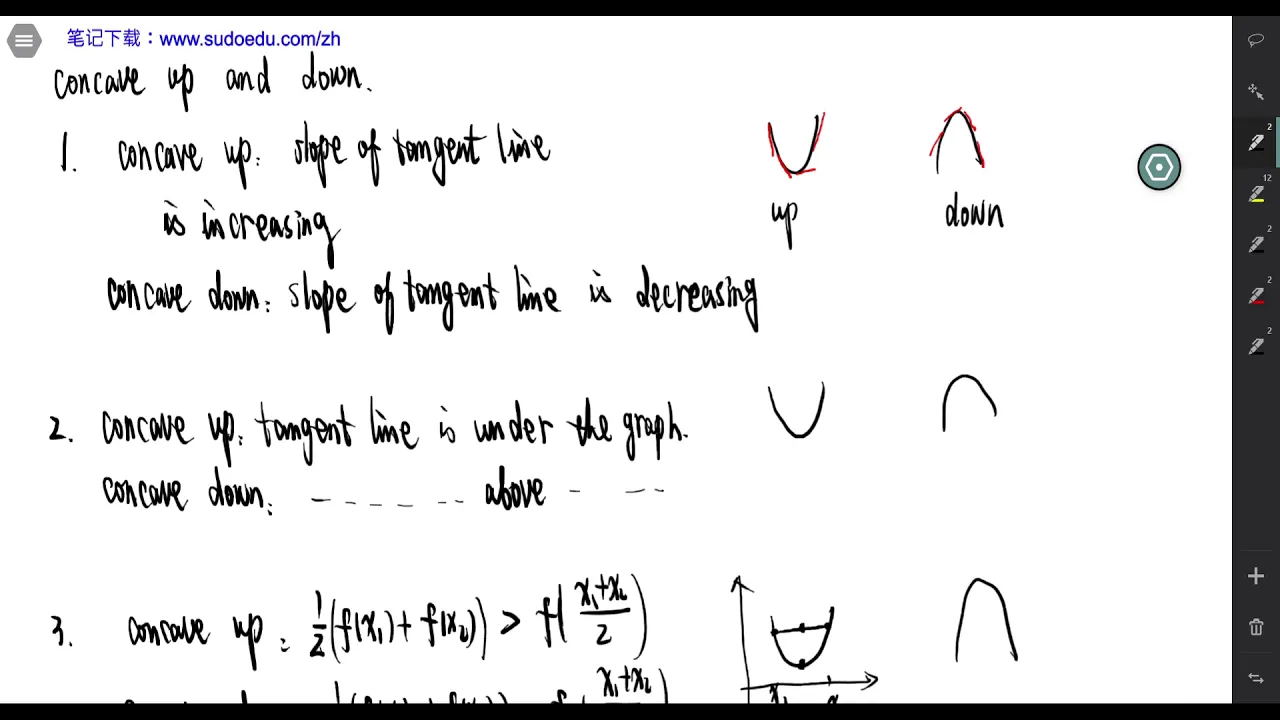 笔记下载：www.sudoedu.com/zh
concave up and down.
1. concave up: slope of tangent line
is increasing
up
down
concave down: slope of tangent line is decreasing
2. concave up: tangent line is under the graph.
concave down: ------ above - --
3. concave up: 1/2 (f(x₁) + f(x₂)) > f((x₁+x₂)/2)
x₁+x₂
2
12
2
2
2